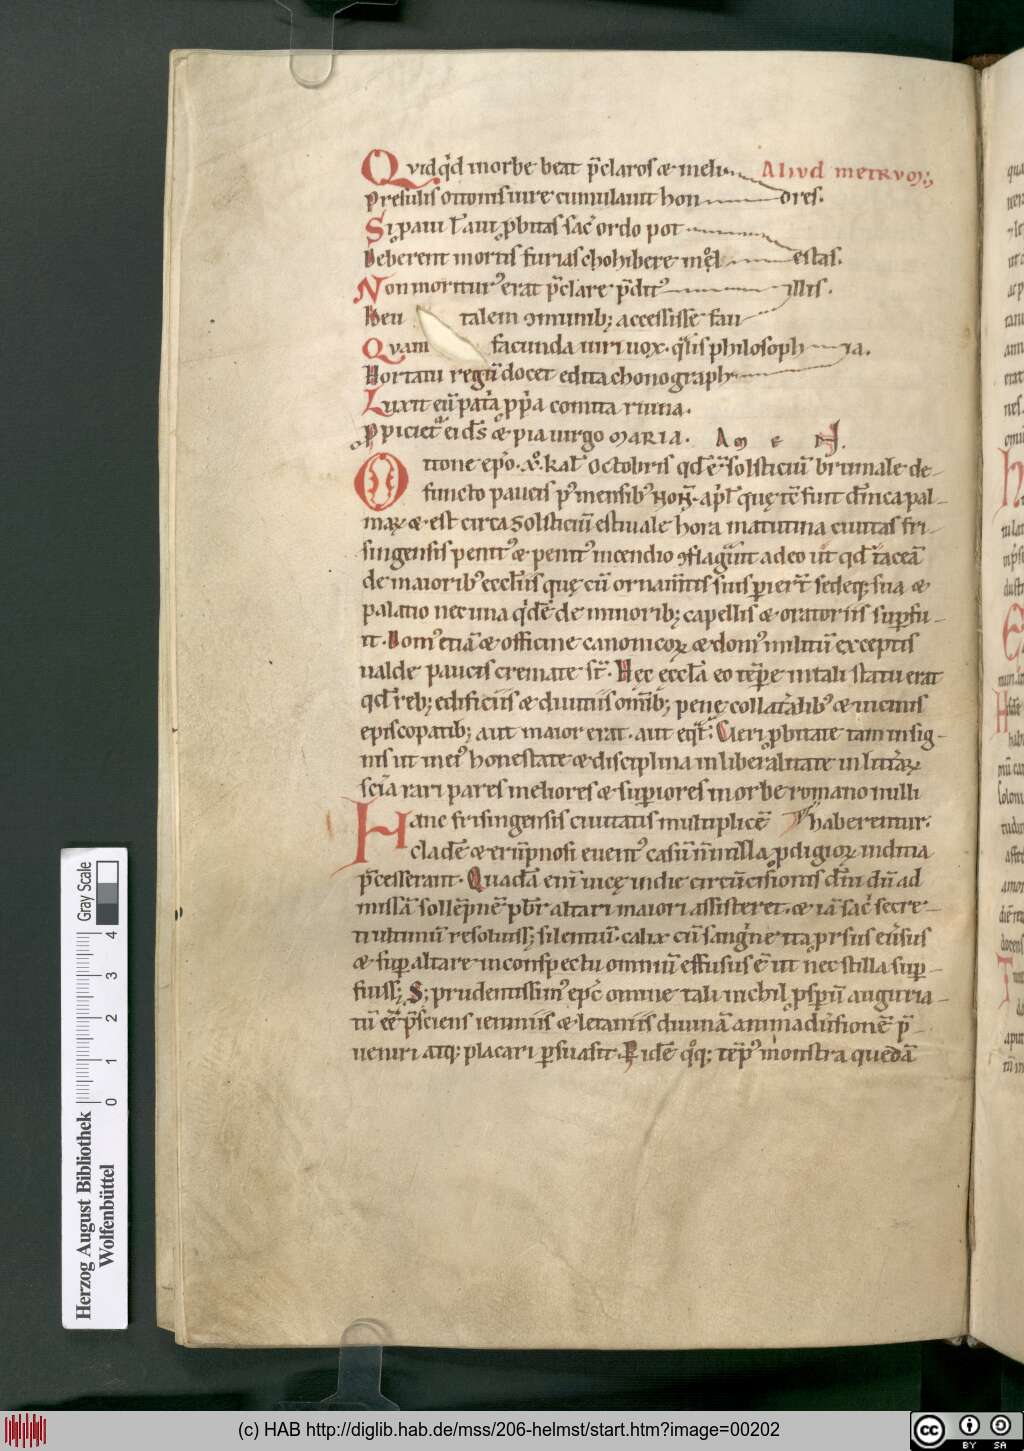 Quidq'd in orbe beat p̄claros & meli Aliud metrum;
Presulis ottonis iure cumulauit hon ores.
Si pauli l' aut p̱bitas sac̄ ordo pot
Deberent mortis furias chohibere mol estas.
Non moritur' erat p̄clare p̄dit' illis.
Heu talem om̄munib; accessisse fau
Quam facunda uiri uox. q̄lis philosoph ia.
Hortatu regū docet edita chonograph
Luxit eū patria p̱pria comita ruina.
P̱piciet' ei d̄s & pia uirgo maria. Am e N.
Ottone ep̄o. xº. kal' octobris qd' ē solsticiū brumale de-
functo paucis p' mensib' non̄. ap̄l' quę tē fuit d̄nica pal-
marꝝ & est circa solsticiū estiuale hora matutina ciuitas fri-
singensis penit' & penit' incendio ɔflagrauit adeo ut qd' taceā
de maiorib' eccl̄iis quę cū ornam̄tis suis perier̄t sedeq; sua &
palatio nec una q'dē de minorib; capellis & oratoriis sup̱fu-
it. Dom' etiā & officine canonicoꝝ & dom' militū exceptis
ualde paucis cremate st̄. Hec eccl̄a eo tēp̱e in tali statu erat
qd' reb; edificiis & diuitiis om̄ib; penę collat'alib' & uicinis
episcopatib; aut maior erat. aut eq̄l'; Cleri p̱bitate tam insig-
nis ut in ei' honestate & disciplina in liberalitate in litt'arꝝ
sciā rari pares meliores & sup̱iores in orbe romano nulli
Hanc frisingensis ciuitatis multiplicē haberentur.
cladē & erūpnosi euent' casū n̄ nulla p̱digioꝝ indicia
p̄cesserant. Quadā eni uicę in die circūcisionis dn̄i dū ad
missā sollēpnē p̱br̄ altari maiori assisteret. & iā sac̄ secre-
ti ultimū resoluiss; silentiū. calix cū sang'ne ita prsus euersus
& sup̱ altare in conspectu omniū effusus ē ut nec stilla sup̱-
fuiss; S; prudentissim' ep̄c omine tali nichil p̱sp̱ū auguria-
tū ēē p̄sciens ieiuniis & letaniis diuinā animaduersionē p̄-
ueniri atq; placari p̱suasit. Eidē q̊q; tēp̱' monstra quedā
Herzog August Bibliothek
Wolfenbüttel
Gray Scale
0 1 2 3 4
(c) HAB http://diglib.hab.de/mss/206-helmst/start.htm?image=00202
cc BY SA